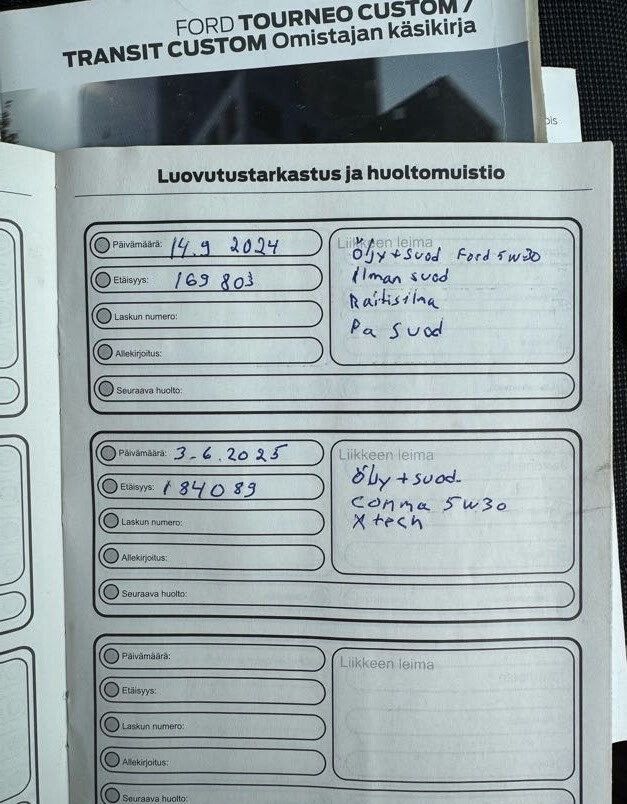 FORD TOURNEO CUSTOM /
TRANSIT CUSTOM Omistajan käsikirja
Luovutustarkastus ja huoltomuistio
Päivämäärä: 14.9 2024
Etäisyys: 169 803
Laskun numero:
Allekirjoitus:
Seuraava huolto:
Liikkeen leima
Öljy + suod Ford 5w30
Ilman suod
Raitisilma
Pa suod
Päivämäärä: 3-6.2025
Etäisyys: 184089
Laskun numero:
Allekirjoitus:
Seuraava huolto:
Liikkeen leima
Öljy + suod.
Comma 5w30
Xtech
Päivämäärä:
Etäisyys:
Laskun numero:
Allekirjoitus:
Seuraava huolto:
Liikkeen leima